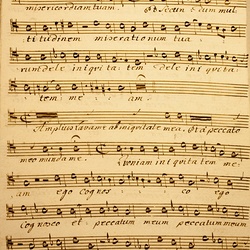 misericordiam tuam. Et Secun dum mul
ti tudinem miserationum tua
dele iniquita tem dele iniquita
tem me am.
Amplius lava me ab iniquitate mea, et a peccato
meo munda me. Quoniam iniquita tem me
am ego cognos co ego
cognosco et peccatum meum peccatum meum